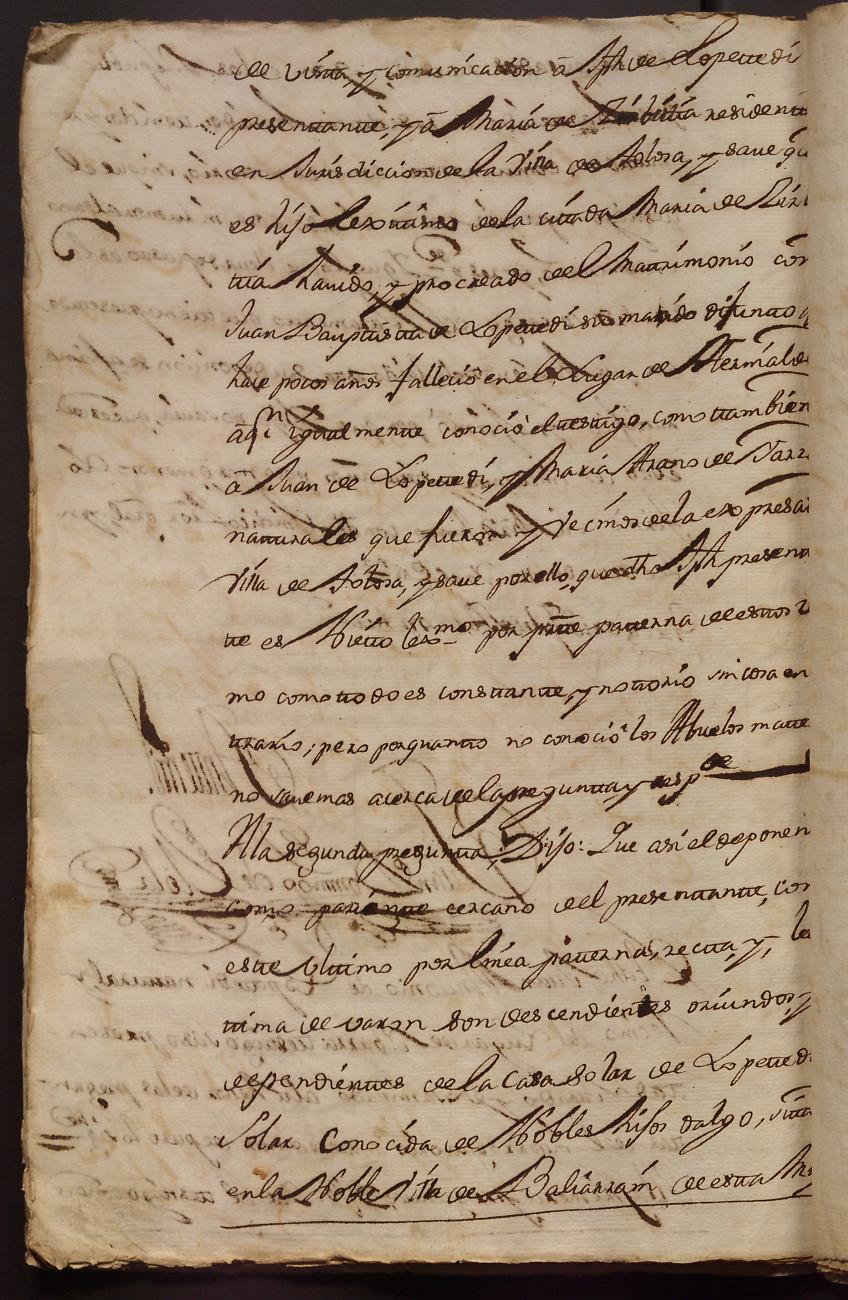 de vista y comunicación à Jph de Lopetedi
presentante, y à Maria de residente
en Jurisdiccion de la Villa de Tolosa, y save qu
es hijo lexitimo de la citada Maria de Ziri
tia havido, y procreado de el Matrimonio con
Juan Bauptista de Lopetedi su marido difunto q
hace pocos años fallecio en el Lugar de Hernialde
aqn igualmente conocio el testigo, como tambien
à Juan de Lopetedi, y Maria Arano de Yarz
naturales que fueron y Vecinos de la expresa
Villa de Tolosa, y save por ello, que dho Jph presenta
te es Nieto lexmo por parte paterna de estos
mo como todo es constante, y notorio sin cosa en
trario; pero por quanto no conocio los Abuelos mate
no save mas acerca de la pregunta, y respde
A la segunda pregunta, Dijo: Que asi el deponen
como pariente cercano de el presentante, con
este ultimo por linea paterna, recta, y, le
tima de varon son descendientes oriundos, y
dependientes de la Casa Solar de Lopetedi
Solar Conocida de Nobles hijos dalgo, sita
en la Noble Villa de Baliarrain de esta M